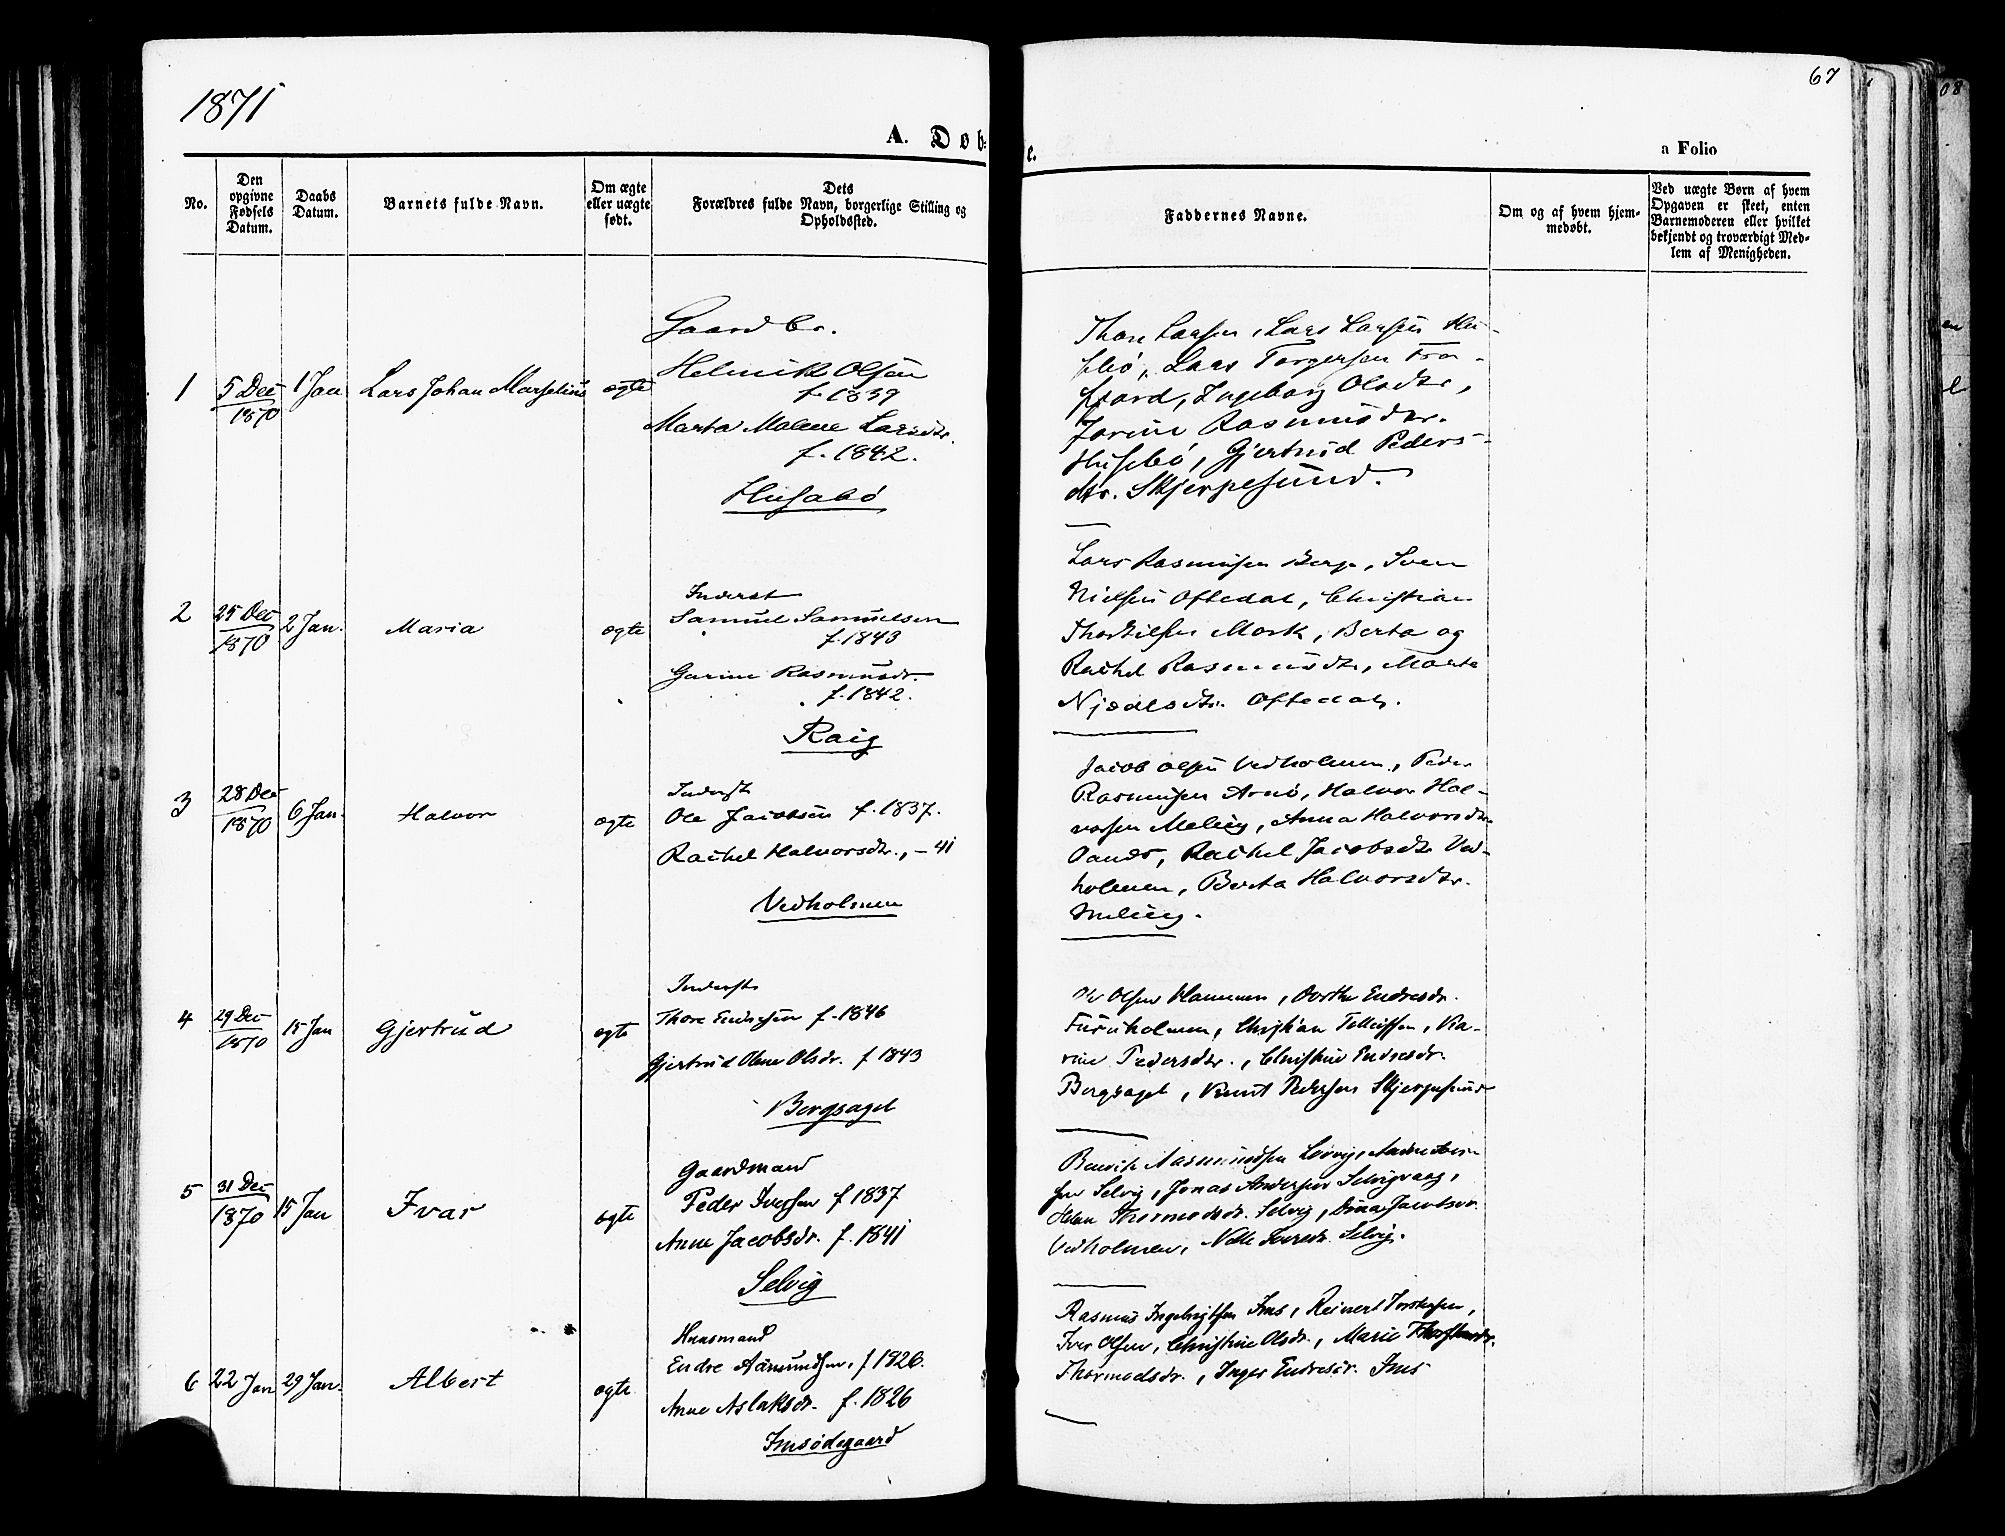 1871
67
A. Døb-
e.
a Folio
No.
Den opgivne Fødsels Datum.
Daabs Datum.
Barnets fulde Navn.
Om ægte eller uægte født.
Dets Forældres fulde Navn, borgerlige Stilling og Opholdssted.
Faddernes Navne.
Om og af hvem hjemmedøbt.
Ved uægte Børn af hvem Opgaven er skeet, enten Barnemoderen eller hvilket bekjendt og troværdigt Medlem af Menigheden.
1
5 Dec 1870
1 Jan
Lars Johan Marselius
ægte
Gaardbr.
Helmik Olsen
f. 1839
Marta Malene Larsdtr.
f. 1842.
Husabö
Thore Larsen, Lars Larsen Hu-
sebö, Lars Torgersen Fra-
fjord, Ingeborg Olsdtr,
Jorine Rasmusdtr.
Husebö, Gjertrud Peders-
dtr. Skjerpesund.
2
25 Dec 1870
2 Jan.
Maria
ægte
Inderst
Samuel Samuelsen
f. 1843
Gurine Rasmusdr.
f. 1842.
Raig
Lars Rasmusen Berge, Sven
Nielsen Oftedal, Christian
Thorkilsen Mark, Berta og
Rachel Rasmusdtr, Marta
Njædlsdtr. Oftedal.
3
28 Dec 1870
6 Jan.
Halvor
ægte
Inderst
Ole Jacobsen f. 1837.
Rachel Halvorsdtr., – 41
Vedholmen
Jacob Olsen Vedholmen, Peder
Rasmusen Arnö, Halvor Hal-
vorsen Meling, Anna Halvorsdtr
Oands, Rachel Jacobsdtr Ved-
holmen, Berta Halvorsdtr.
Meling.
4
29 Dec 1870
15 Jan
Gjertrud
ægte
Inderst
Thore Endresen f. 1846
Gjertrud Olene Olsdr. f 1843
Bergsagel
Olsen, Dorthe Endresdr.
Furuholmen, Christian Tolleifsen, Ka-
rine Pedersdtr., Christine Endresdr.
Bergsagel, Knut Pedersen Skjerpesund
5
31 Dec 1870
15 Jan
Ivar
ægte
Gaardmand
Peder Iversen f 1837
Anne Jacobsdr. f. 1841
Selvig
Rasmussen
sen Selvig, Jonas Andersen Selvigvaag,
Helene Thormodsdr. Selvig, Dina Jacobsdr.
Vedholmen, Iversdr. Selvig.
6
22 Jan
29 Jan.
Albert
ægte
Huusmand
Endre Asmundsen, f 1826.
Anne Aslaksdr. f. 1826
Imsödegaard
Rasmus Ingebrigtsen Ims, Reinert Torstensen,
Iver Olsen, Christine Olsdr., Marie Thorstensdr.
Thormodsdr., Inger Endresdr. Ims